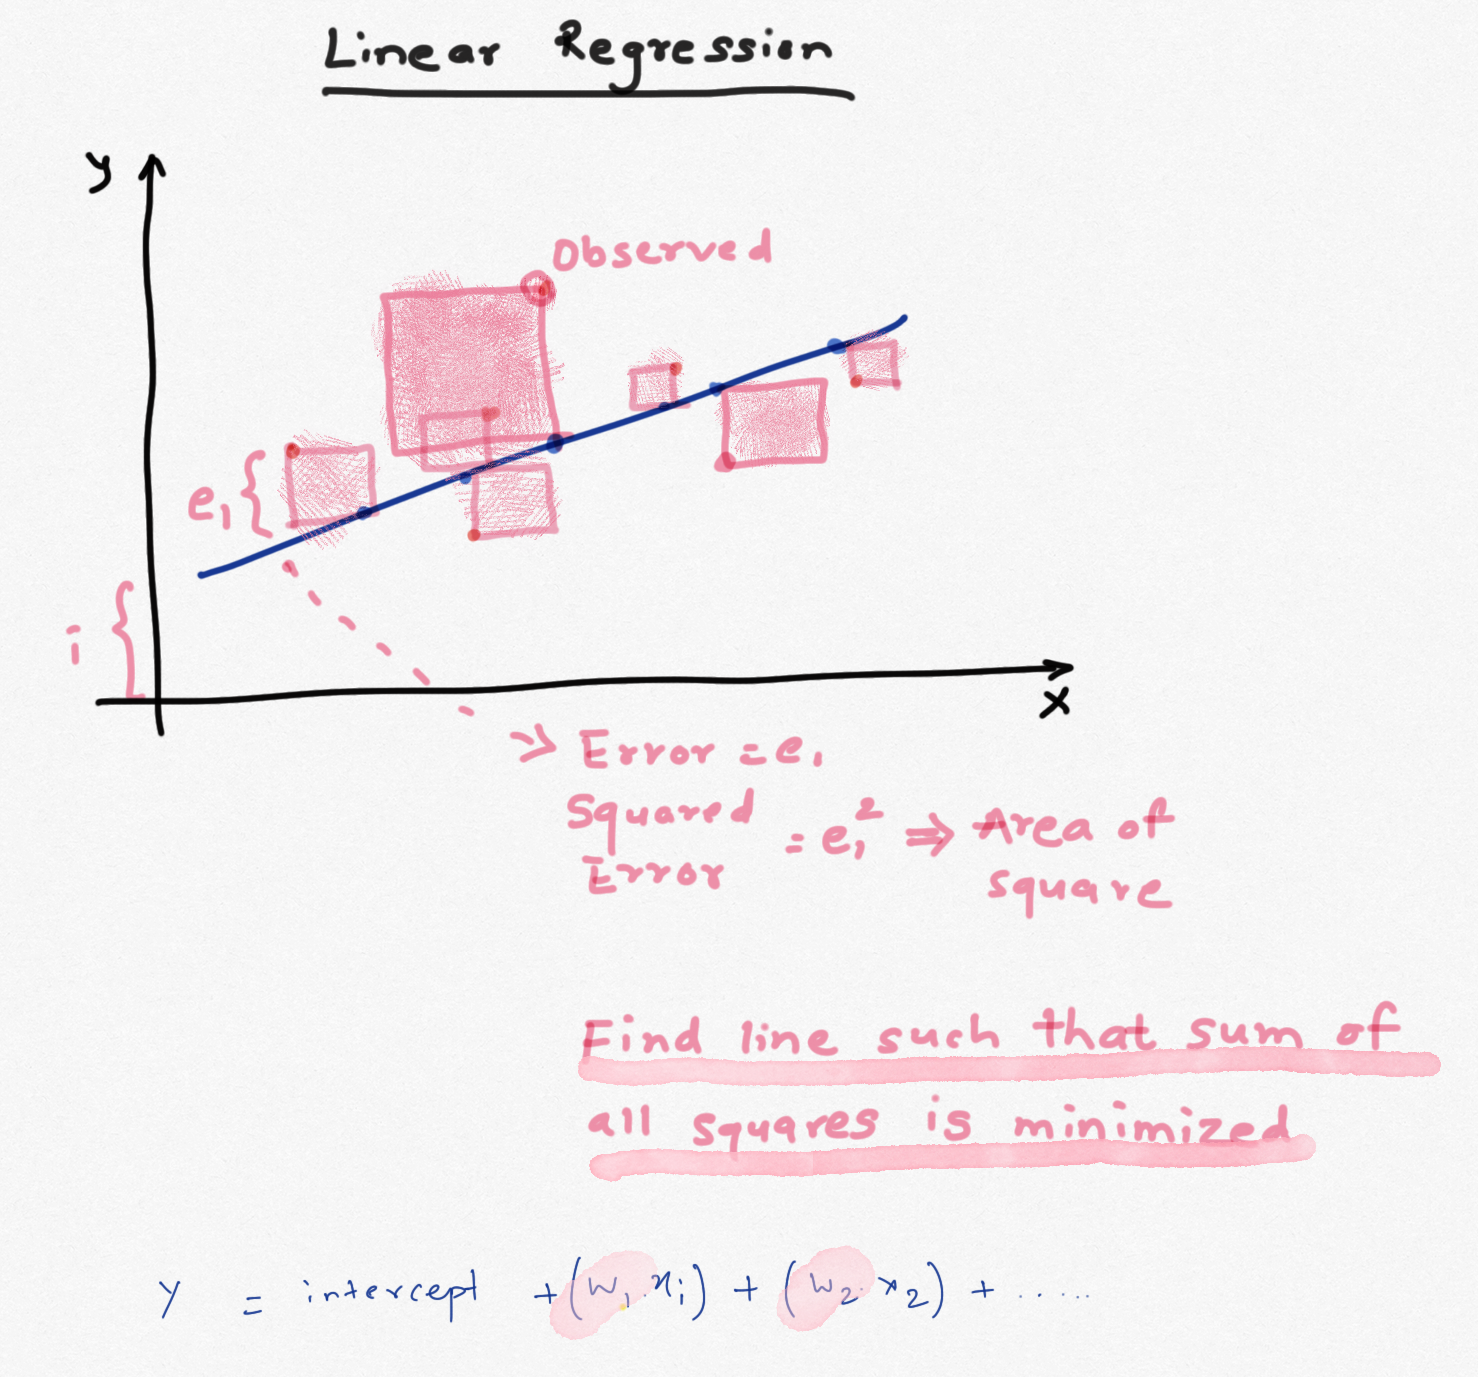 Linear Regression
y
Observed
e₁
i
x
Error = e₁
Squared Error = e₁² ⇒ Area of square
Find line such that sum of
all squares is minimized
y = intercept + (w₁.xᵢ) + (w₂.x₂) + .....